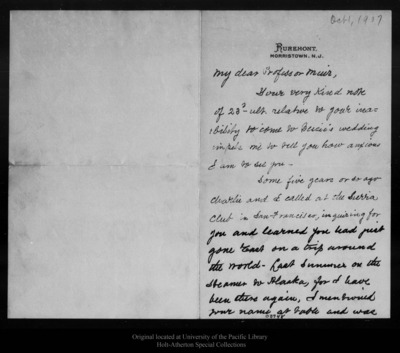 Oct 1, 1907
AUREMONT.
MORRISTOWN, N.J.
My dear Professor Muir,
Your very kind note
of 23d ult. relative to your ina-
bility to come to wedding
me to tell you how anxious
I am to see you -
Some five years or so ago
Charlie and I called at the Sierra
Club in San Francisco, inquiring for
you and learned you had just
gone East on a trip around
the world - Last Summer on the
Steamer to Alaska, for I have
been there again, I mentioned
your name at table and was
Original located at University of the Pacific Library
Holt-Atherton Special Collections